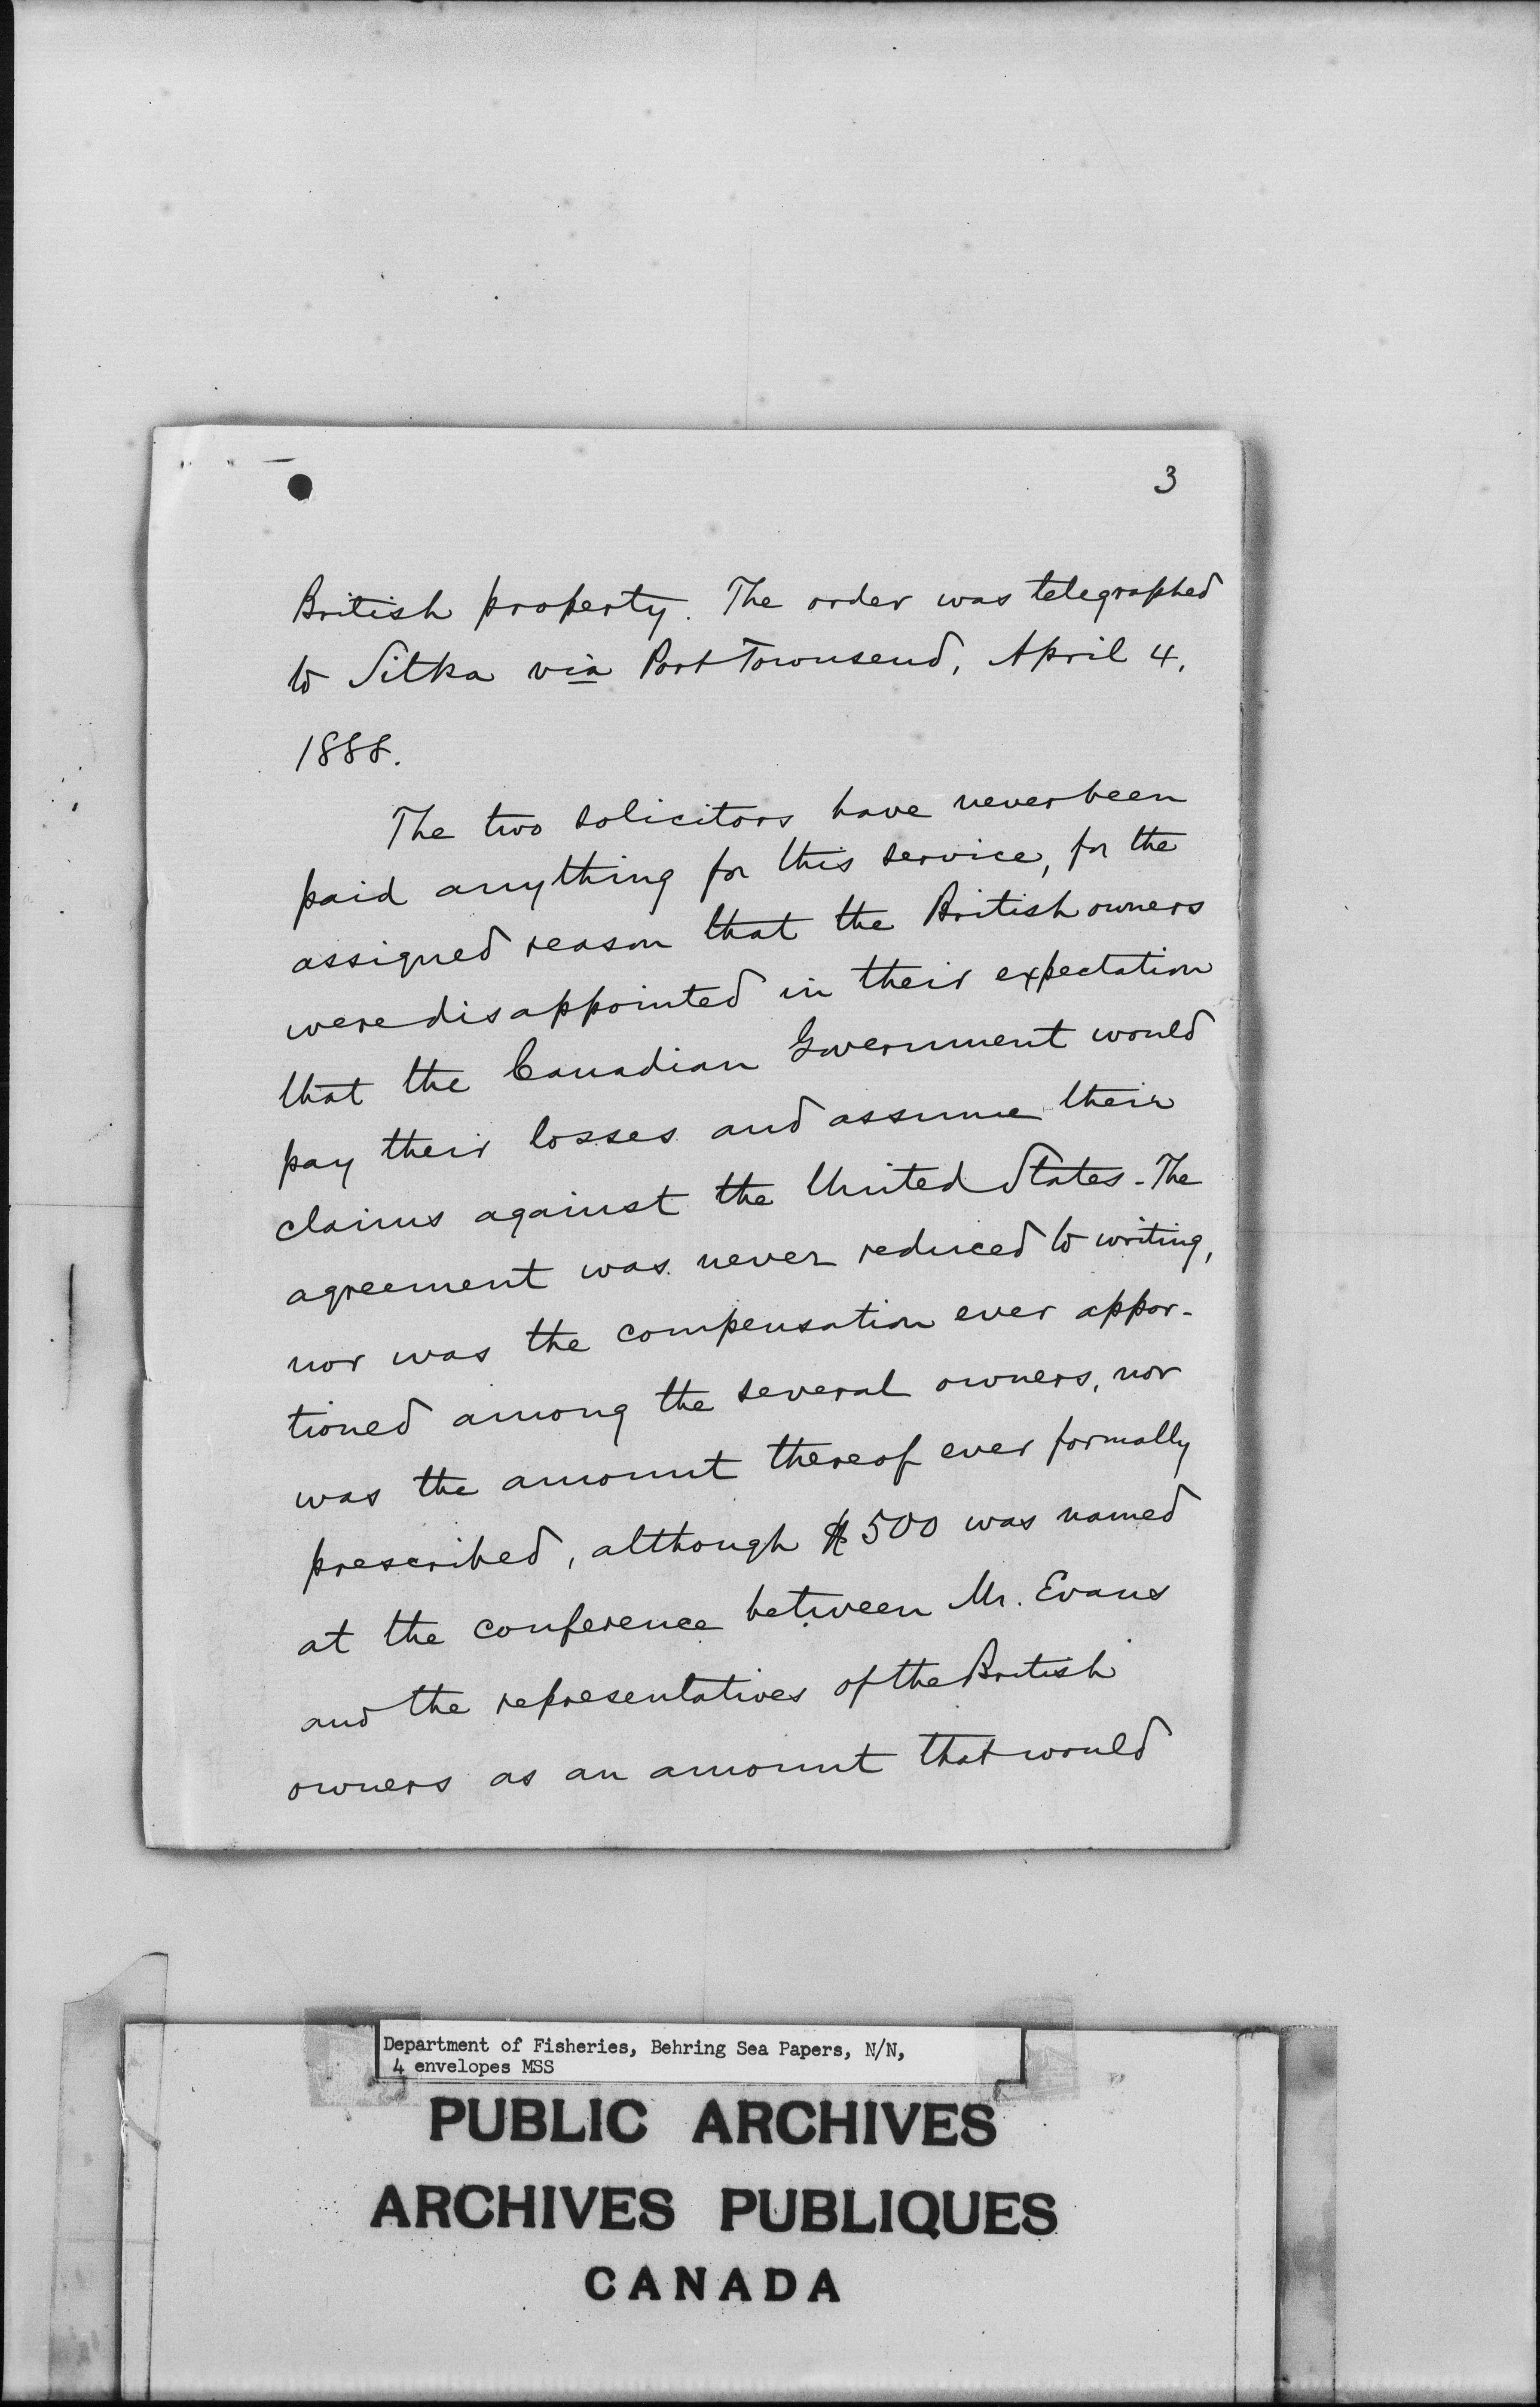 3
British property. The order was telegraphed
to Sitka via Port Townsend, April 4,
1888.
The two solicitors have never been
paid anything for this service, for the
assigned reason that the British owners
were disappointed in their expectation
that the Canadian Government would
pay their losses and assume their
claims against the United States. The
agreement was never reduced to writing,
nor was the compensation ever appor-
tioned among the several owners, nor
was the amount thereof ever formally
prescribed, although $500 was named
at the conference between Mr. Evans
and the representatives of the British
owners as an amount that would
Department of Fisheries, Behring Sea Papers, N/N,
4 envelopes MSS
PUBLIC ARCHIVES
ARCHIVES PUBLIQUES
CANADA